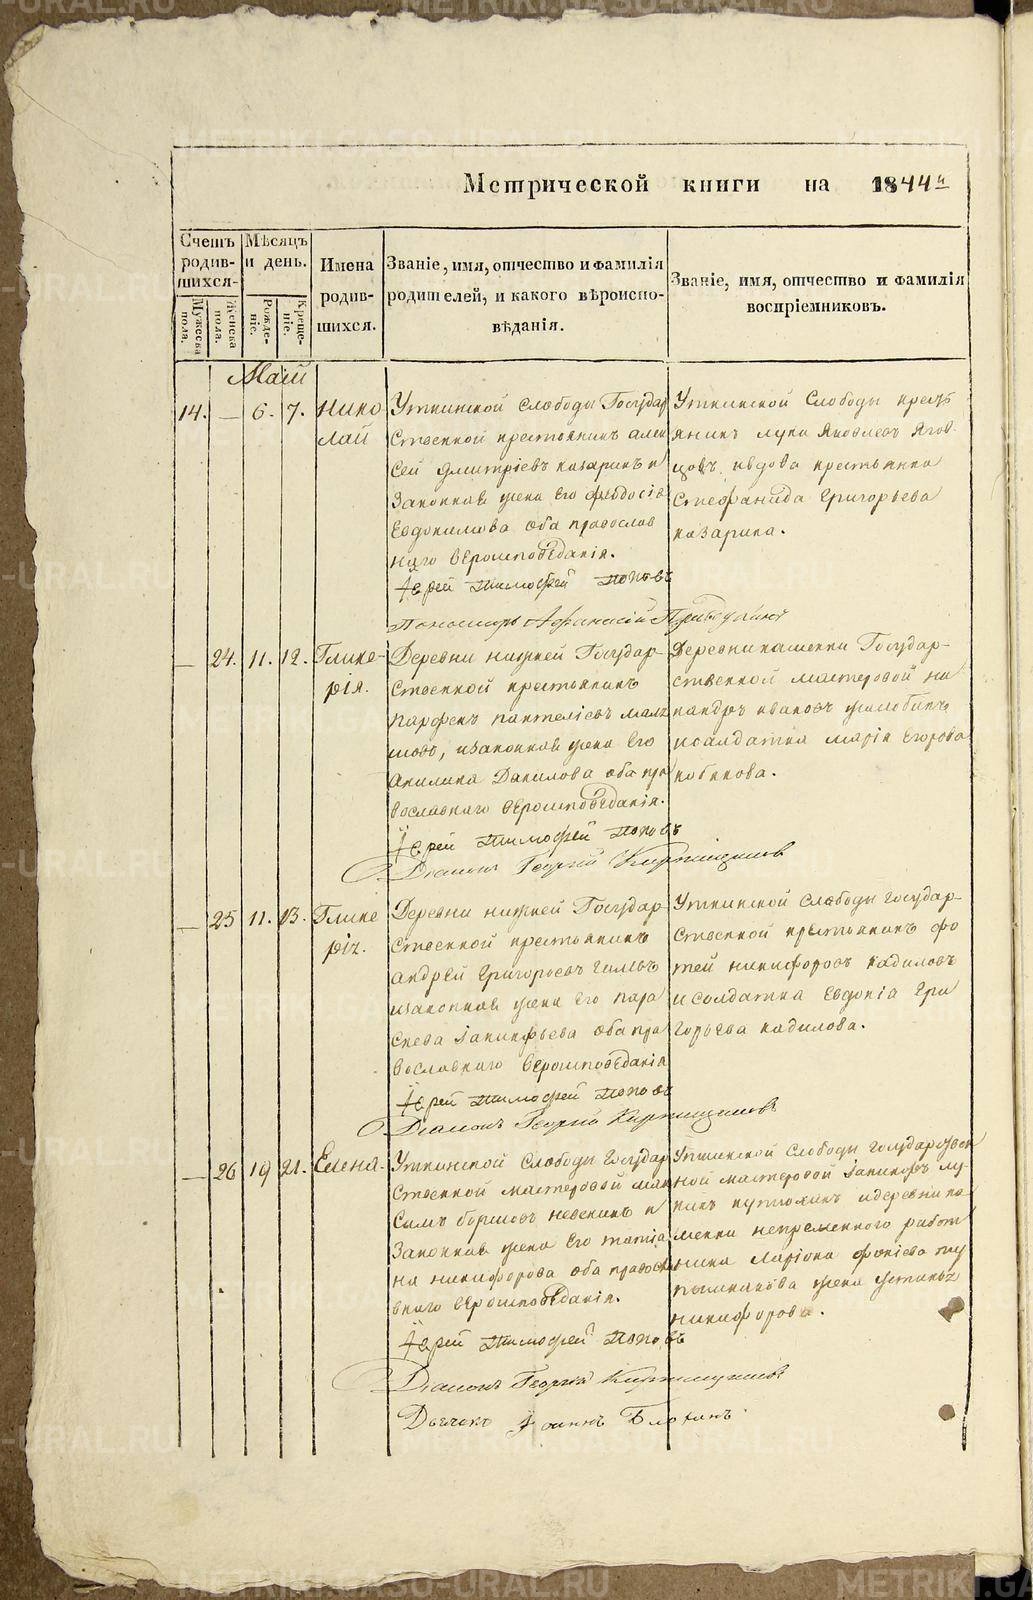 Метрической книги на 1844й
Счетъ родив-шихся.
Мѣсяцъ и день.
Имена родив-шихся.
Званіе, имя, отчество и фамилія родителей, и какого вѣроиспо-вѣданія.
Званіе, имя, отчество и фамилія воспріемниковъ.
Мужеска пола.
Женска пола.
Рожде-ніе.
Креще-ніе.
Маій
14. — 6. 7.
Нико
лай
Уткинской Слободы Государ
ственной крестьянинъ алек
сей дмитріевъ казаринъ и
Законная жена Его феодосія
Евдокимова оба православ
наго вѣроисповѣданія.
Іерей Тимофей Поповъ
Пономарь Афанасій
Уткинской Слободы крестъ
янинъ лука Яковлевъ
цовъ, ивдова крестьянка
Стефанида Григорьева
казарина.
— 24. 11. 12.
Глике-
рія.
Деревни нижней Государ-
ственной крестьянинъ
парфенъ пантелѣевъ
изаконная жена Его
Акилина Данилова оба пра
вославнаго вѣроисповѣданія.
Іерей Тимофей Поповъ
Діаконъ Георгій Кирпищиковъ
Деревни каменки Государ-
ственной мастеровой ни
кандръ ивановъ
исолдатка марія Егорова
кобякова.
— 25 11. 13.
Глике
рія.
Деревни нижней Государ-
ственной крестьянинъ
андрей Григорьевъ
изаконная жена Его пара
скева іакинфьева оба пра
вославнаго вѣроисповѣданія
Іерей Тимофей Поповъ
Діаконъ Георгій Кирпищиковъ
Уткинской Слободы государ-
ственной крестьянинъ фо
тей никифоровъ кадиловъ
исолдатка Евдокія Гри
горьева кадилова.
— 26 19 21.
Елена.
Уткинской Слободы государ
ственной мастеровой мак
симъ борисовъ и
Законная жена Его татіа
на никифорова оба правосла
внаго вѣроисповѣданія.
Іерей Тимофей Поповъ
Діаконъ Георгій Кирпищиковъ
Дьячекъ Іоаннъ Блохинъ
Уткинской Слободы государствен
ной мастеровой іакинфъ лу
кинъ идеревни ка
менки непременного работ
ника Ларіона фокіева
жена Устинья
никифорова.